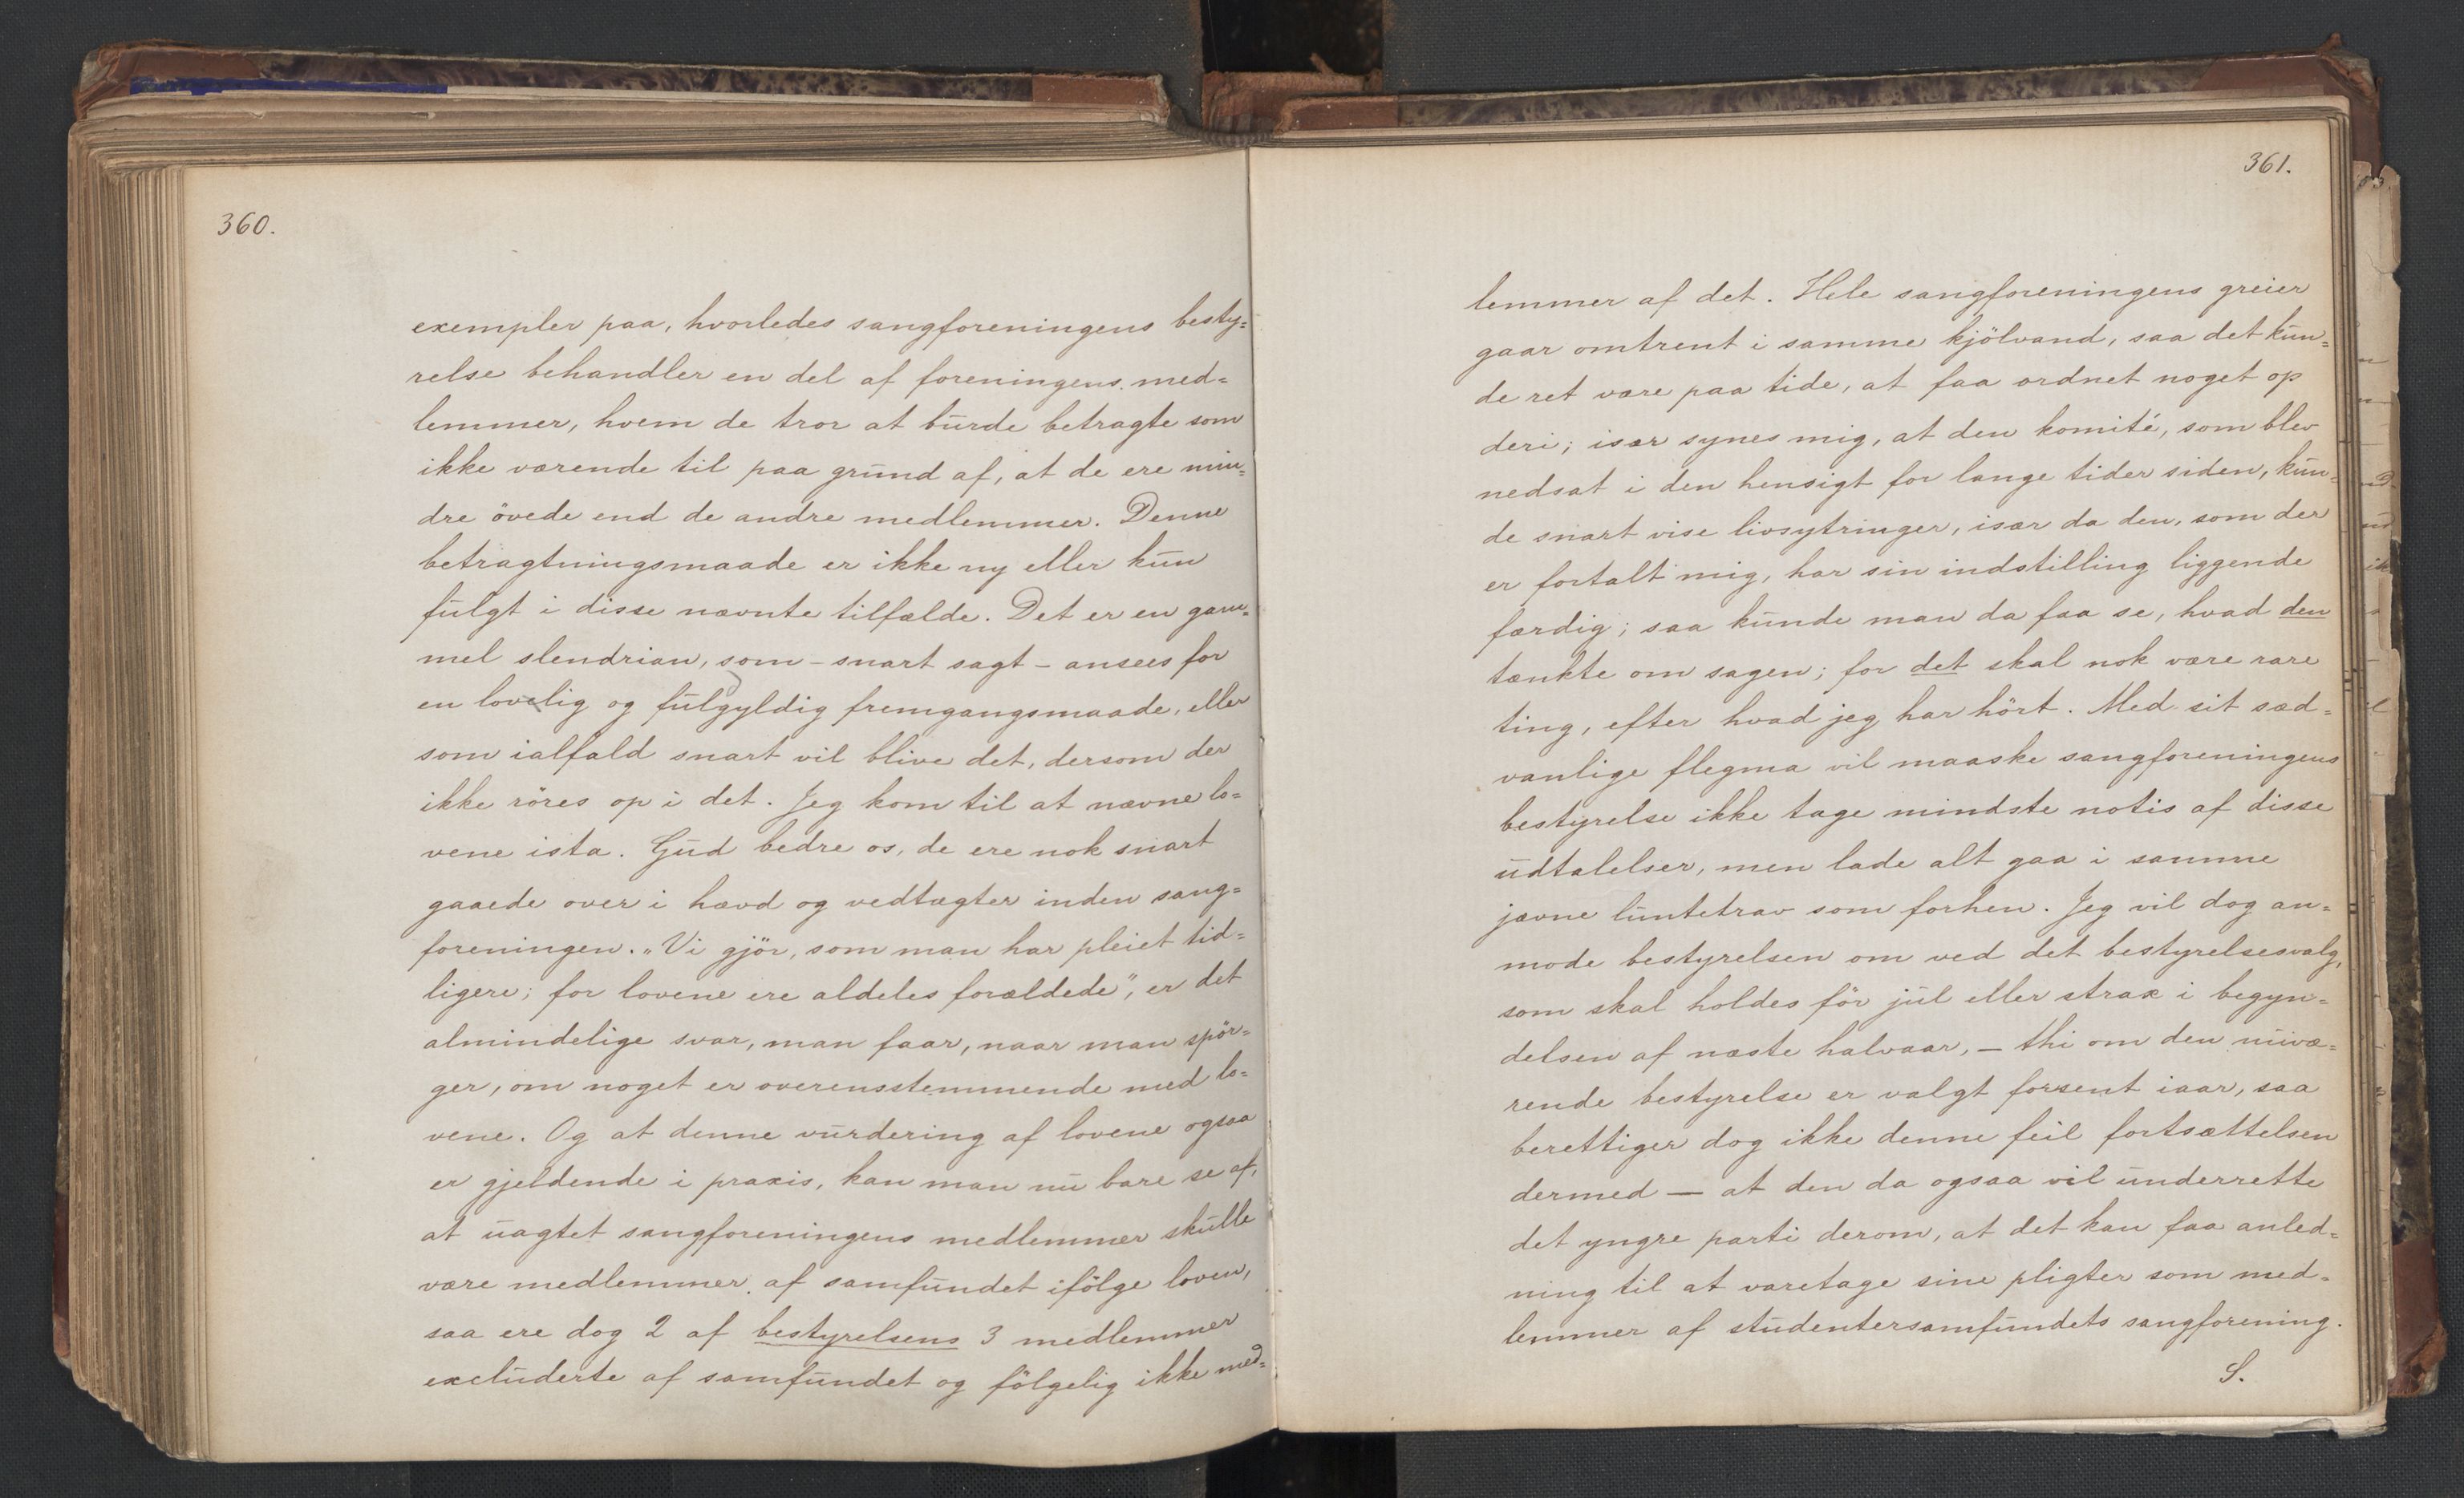 360.
exempler paa, hvorledes sangforeningens besty=
relse behandler en del af foreningens med=
lemmer, hvem de tror at burde betragte som
ikke værende til paa grund af, at de ere min=
dre övede end de andre medlemmer. Denne
betragtningsmaade er ikke ny eller kun
fulgt i disse nævnte tilfælde. Det er en gam=
mel slendrian, som – snart sagt – ansees for
en lovelig og fulgyldig fremgangsmaade, eller
som ialfald snart vil blive det, dersom der
ikke röres op i det. Jeg kom til at nævne lo=
vene ista. Gud bedre os, de ere nok snart
gaaede over i hævd og vedtægter inden sang=
foreningen. „Vi gjör, som man har pleiet tid=
ligere; for lovene ere aldeles forældede", er det
almindelige svar, man faar, naar man spör=
ger, om noget er overensstemmende med lo=
vene. Og at denne vurdering af lovene ogsaa
er gjeldende i praxis, kan man nu bare se af,
at uagtet sangforeningens medlemmer skulle
være medlemmer af samfundet ifölge loven,
saa ere dog 2 af bestyrelsens 3 medlemmer
excluderte af samfundet og fölgelig ikke med=
361.
lemmer af det. Hele sangforeningens greier
gaar omtrent i samme kjölvand, saa det kun=
de ret være paa tide, at faa ordnet noget op
deri; især synes mig, at den komité, som blev
nedsat i den hensigt for lange tider siden, kun=
de snart vise livsytringer, især da den, som der
er fortalt mig, har sin indstilling liggende
færdig; saa kunde man da faa se, hvad den
tænkte om sagen; for det skal nok være rare
ting, efter hvad jeg har hört. Med sit sæd=
vanlige flegma vil maaske sangforeningens
bestyrelse ikke tage mindste notis af disse
udtalelser, men lade alt gaa i samme
jævne luntetrav som forhen. Jeg vil dog an=
mode bestyrelsen om ved det bestyrelsesvalg,
som skal holdes för jul eller strax i begyn=
delsen af næste halvaar, – thi om den nuvæ=
rende bestyrelse er valgt forsent iaar, saa
berettiger dog ikke denne feil fortsættelsen
dermed – at den da ogsaa vil underrette
det yngre parti derom, at det kan faa anled=
ning til at varetage sine pligter som med=
lemmer af studentersamfundets sangforening.
S.